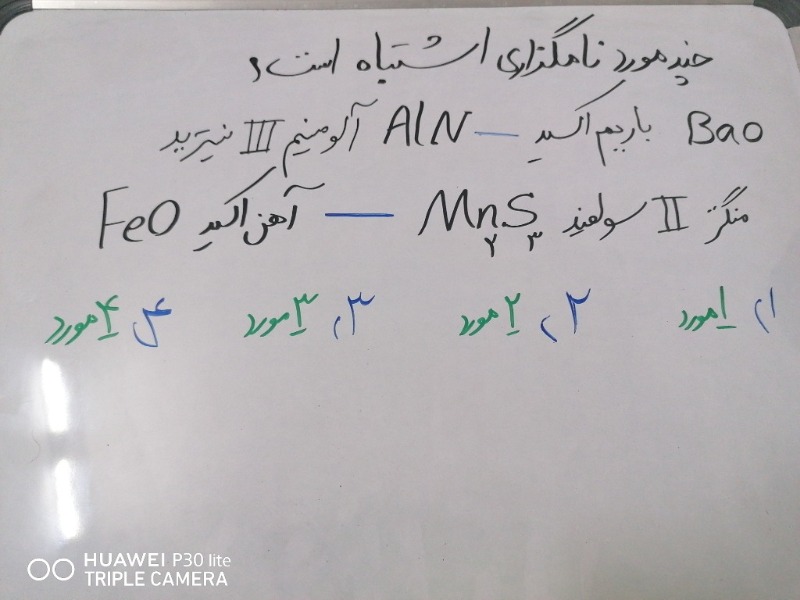 چند مورد نامگزاری اشتباه است؟
BaO باریم اکسید — AlN آلومنیم III نیترید
منگنز II سولفید Mn۲S۳ — آهن اکسید FeO
۱) ۱ مورد ۲) ۲ مورد ۳) ۳ مورد ۴) ۴ مورد
HUAWEI P30 lite
TRIPLE CAMERA